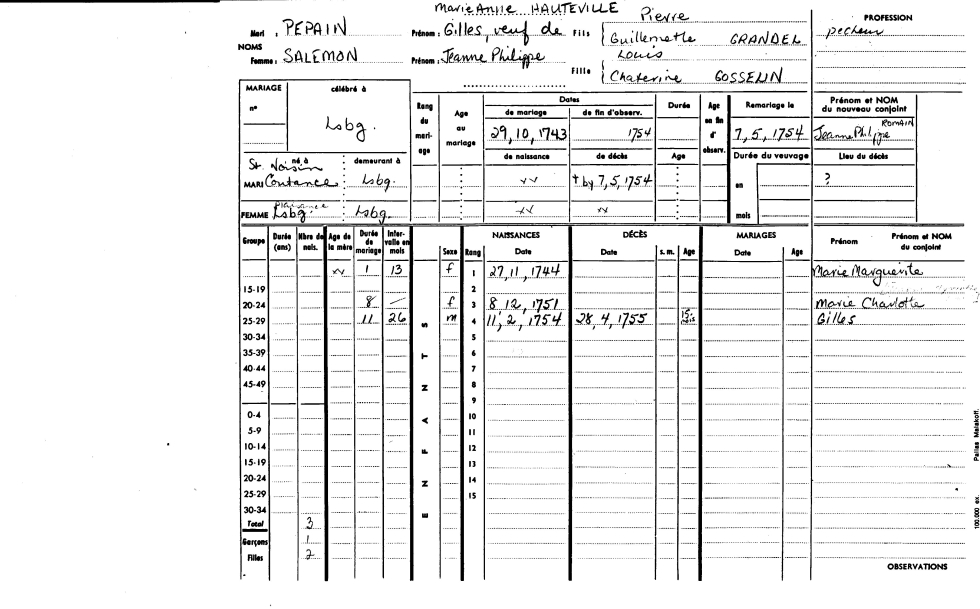 Marie Anne HAUTEVILLE
NOMS
Mari : PEPAIN Prénom : Gilles, veuf de Fils Pierre
Guillemette GRANDEL
Femme : SALEMON Prénom : Jeanne Philippe Fille Louis
Chaterine GOSSELIN
PROFESSION
pecheur
MARIAGE célébré à
n°
Lsbg.
Rang du mari-age
Age au mariage
Dates
de mariage de fin d'observ.
29, 10, 1743 1754
de naissance de décès
Durée
Age
Age en fin d' observ.
Remariage le
7, 5, 1754
Durée du veuvage
en
mois
Prénom et NOM
du nouveau conjoint
ROMAIN
Jeanne Philippe
Lieu du décès
?
né à demeurant à
MARI Coutance Lsbg. † by 7, 5, 1754
Plaisance
FEMME Lsbg. Lsbg.
Groupe Durée (ans) Nbre de nais. Age de la mère Durée de mariage Inter-valle en mois
ENFANTS
Sexe Rang
NAISSANCES Date
DÉCÈS Date s. m. Age
MARIAGES Date Age
Prénom Prénom et NOM du conjoint
1 13 f 1 27, 11, 1744 Marie Marguerite
15-19 2
20-24 8 - f 3 8 12, 1751 Marie Charlotte
25-29 11 26 m 4 11, 2, 1754 28, 4, 1755 Gilles
30-34 5
35-39 6
40-44 7
45-49 8
9
0-4 10
5-9 11
10-14 12
15-19 13
20-24 14
25-29 15
30-34
Total 3
Garçons 1
Filles 2
OBSERVATIONS
100.000 ex. Pallas Malakoff.